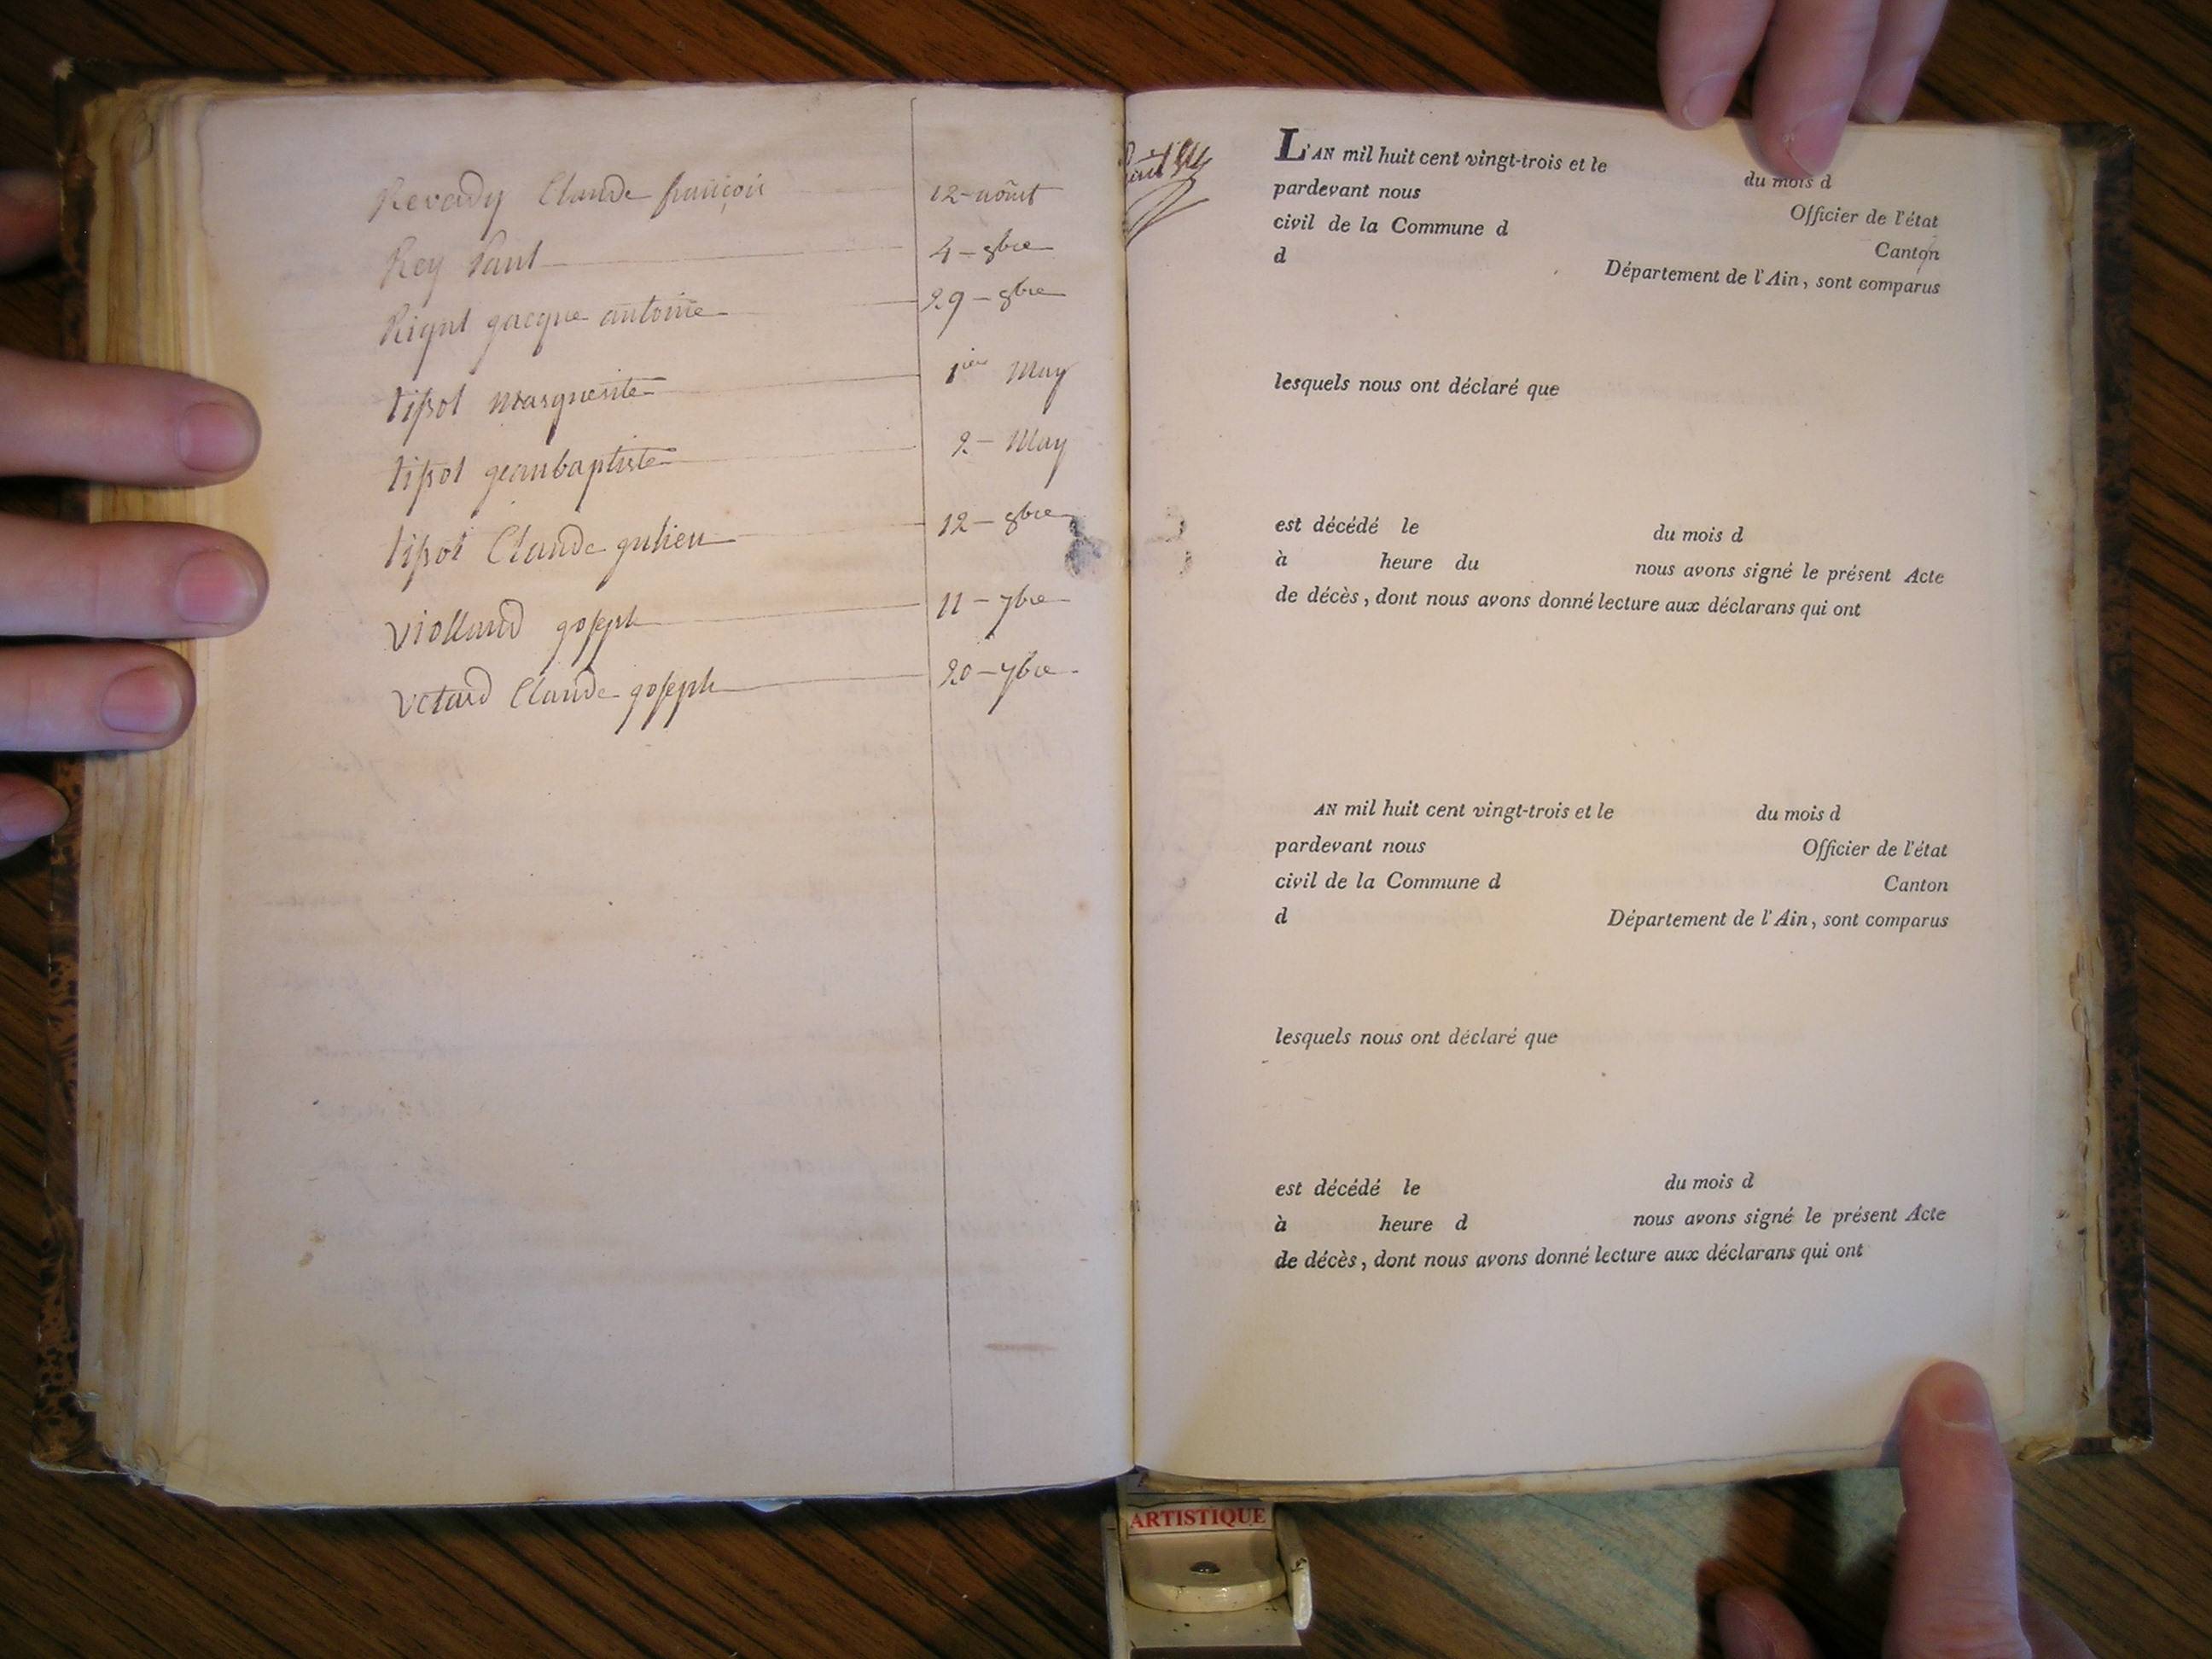 Revady Claude françois 12 - aoûst
Rey Paul 4 - 8bre
Rignt gacque antoine 29 - 8bre
tissot marguerite 1ier May
tissot geanbaptiste 2 - May
tissot Claude gulien 12 - 8bre
Violland goseph 11 - 7bre
Claude goseph 20 - 7bre
L'AN mil huit cent vingt-trois et le du mois d
pardevant nous Officier de l'état
civil de la Commune d Canton
d Département de l'Ain, sont comparus
lesquels nous ont déclaré que
est décédé le du mois d
à heure du nous avons signé le présent Acte
de décès, dont nous avons donné lecture aux déclarans qui ont
AN mil huit cent vingt-trois et le du mois d
pardevant nous Officier de l'état
civil de la Commune d Canton
d Département de l'Ain, sont comparus
lesquels nous ont déclaré que
est décédé le du mois d
à heure d nous avons signé le présent Acte
de décès, dont nous avons donné lecture aux déclarans qui ont
ARTISTIQUE